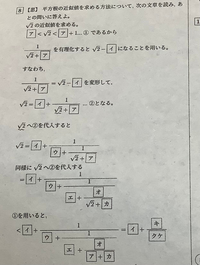 8 【選】 平方根の近似値を求める方法について、次の文章を読み、あ
との問いに答えよ。
√2の近似値を求める。
ア < √2 < ア + 1 … ① であるから
1/(√2 + ア) を有理化すると √2 − イ になることを用いる。
すなわち、
1/(√2 + ア) = √2 − イ を変形して、
√2 = イ + 1/(√2 + ア) … ② となる。
√2 へ②を代入すると
√2 = イ + 1/(ウ + 1/(√2 + ア))
同様に √2 へ②を代入する
= イ + 1/(ウ + 1/(エ + オ/(√2 + カ)))
①を用いると、
< イ + 1/(ウ + 1/(エ + オ/(ア + カ))) = イ + キ/クケ